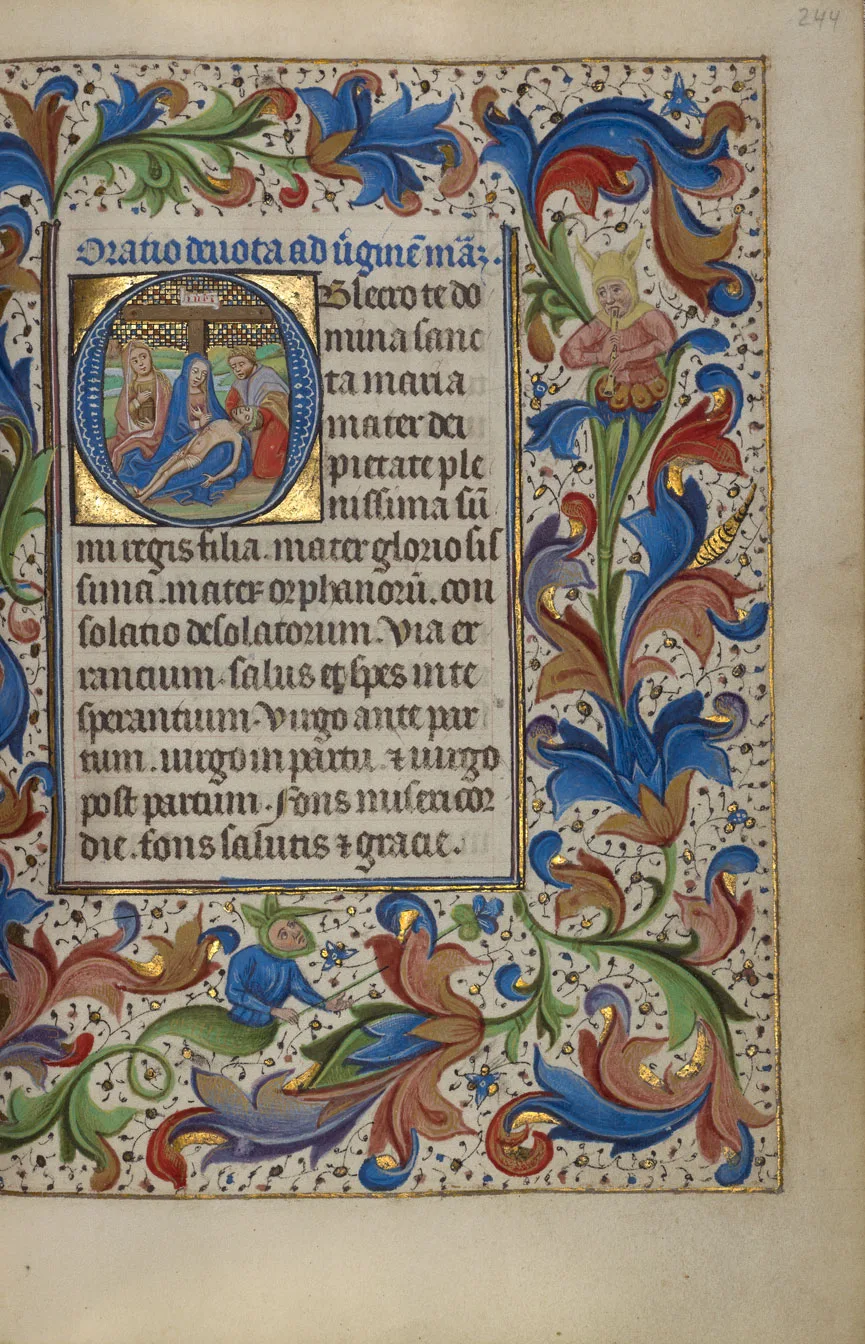 244
Oratio deuota ad v̄ginē māꝫ.
INRI
OBsecro te do
mina sanc
ta maria
mater dei
pietate ple
nissima sū
mi regis filia. mater gloriosis
sima. mater orphanorū. con
solatio desolatorum. Via er
rancium. salus et spes in te
sperantium. Virgo ante par
tum. uirgo in partu. ⁊ uirgo
post partum. Fons misericor
die. fons salutis ⁊ gracie.